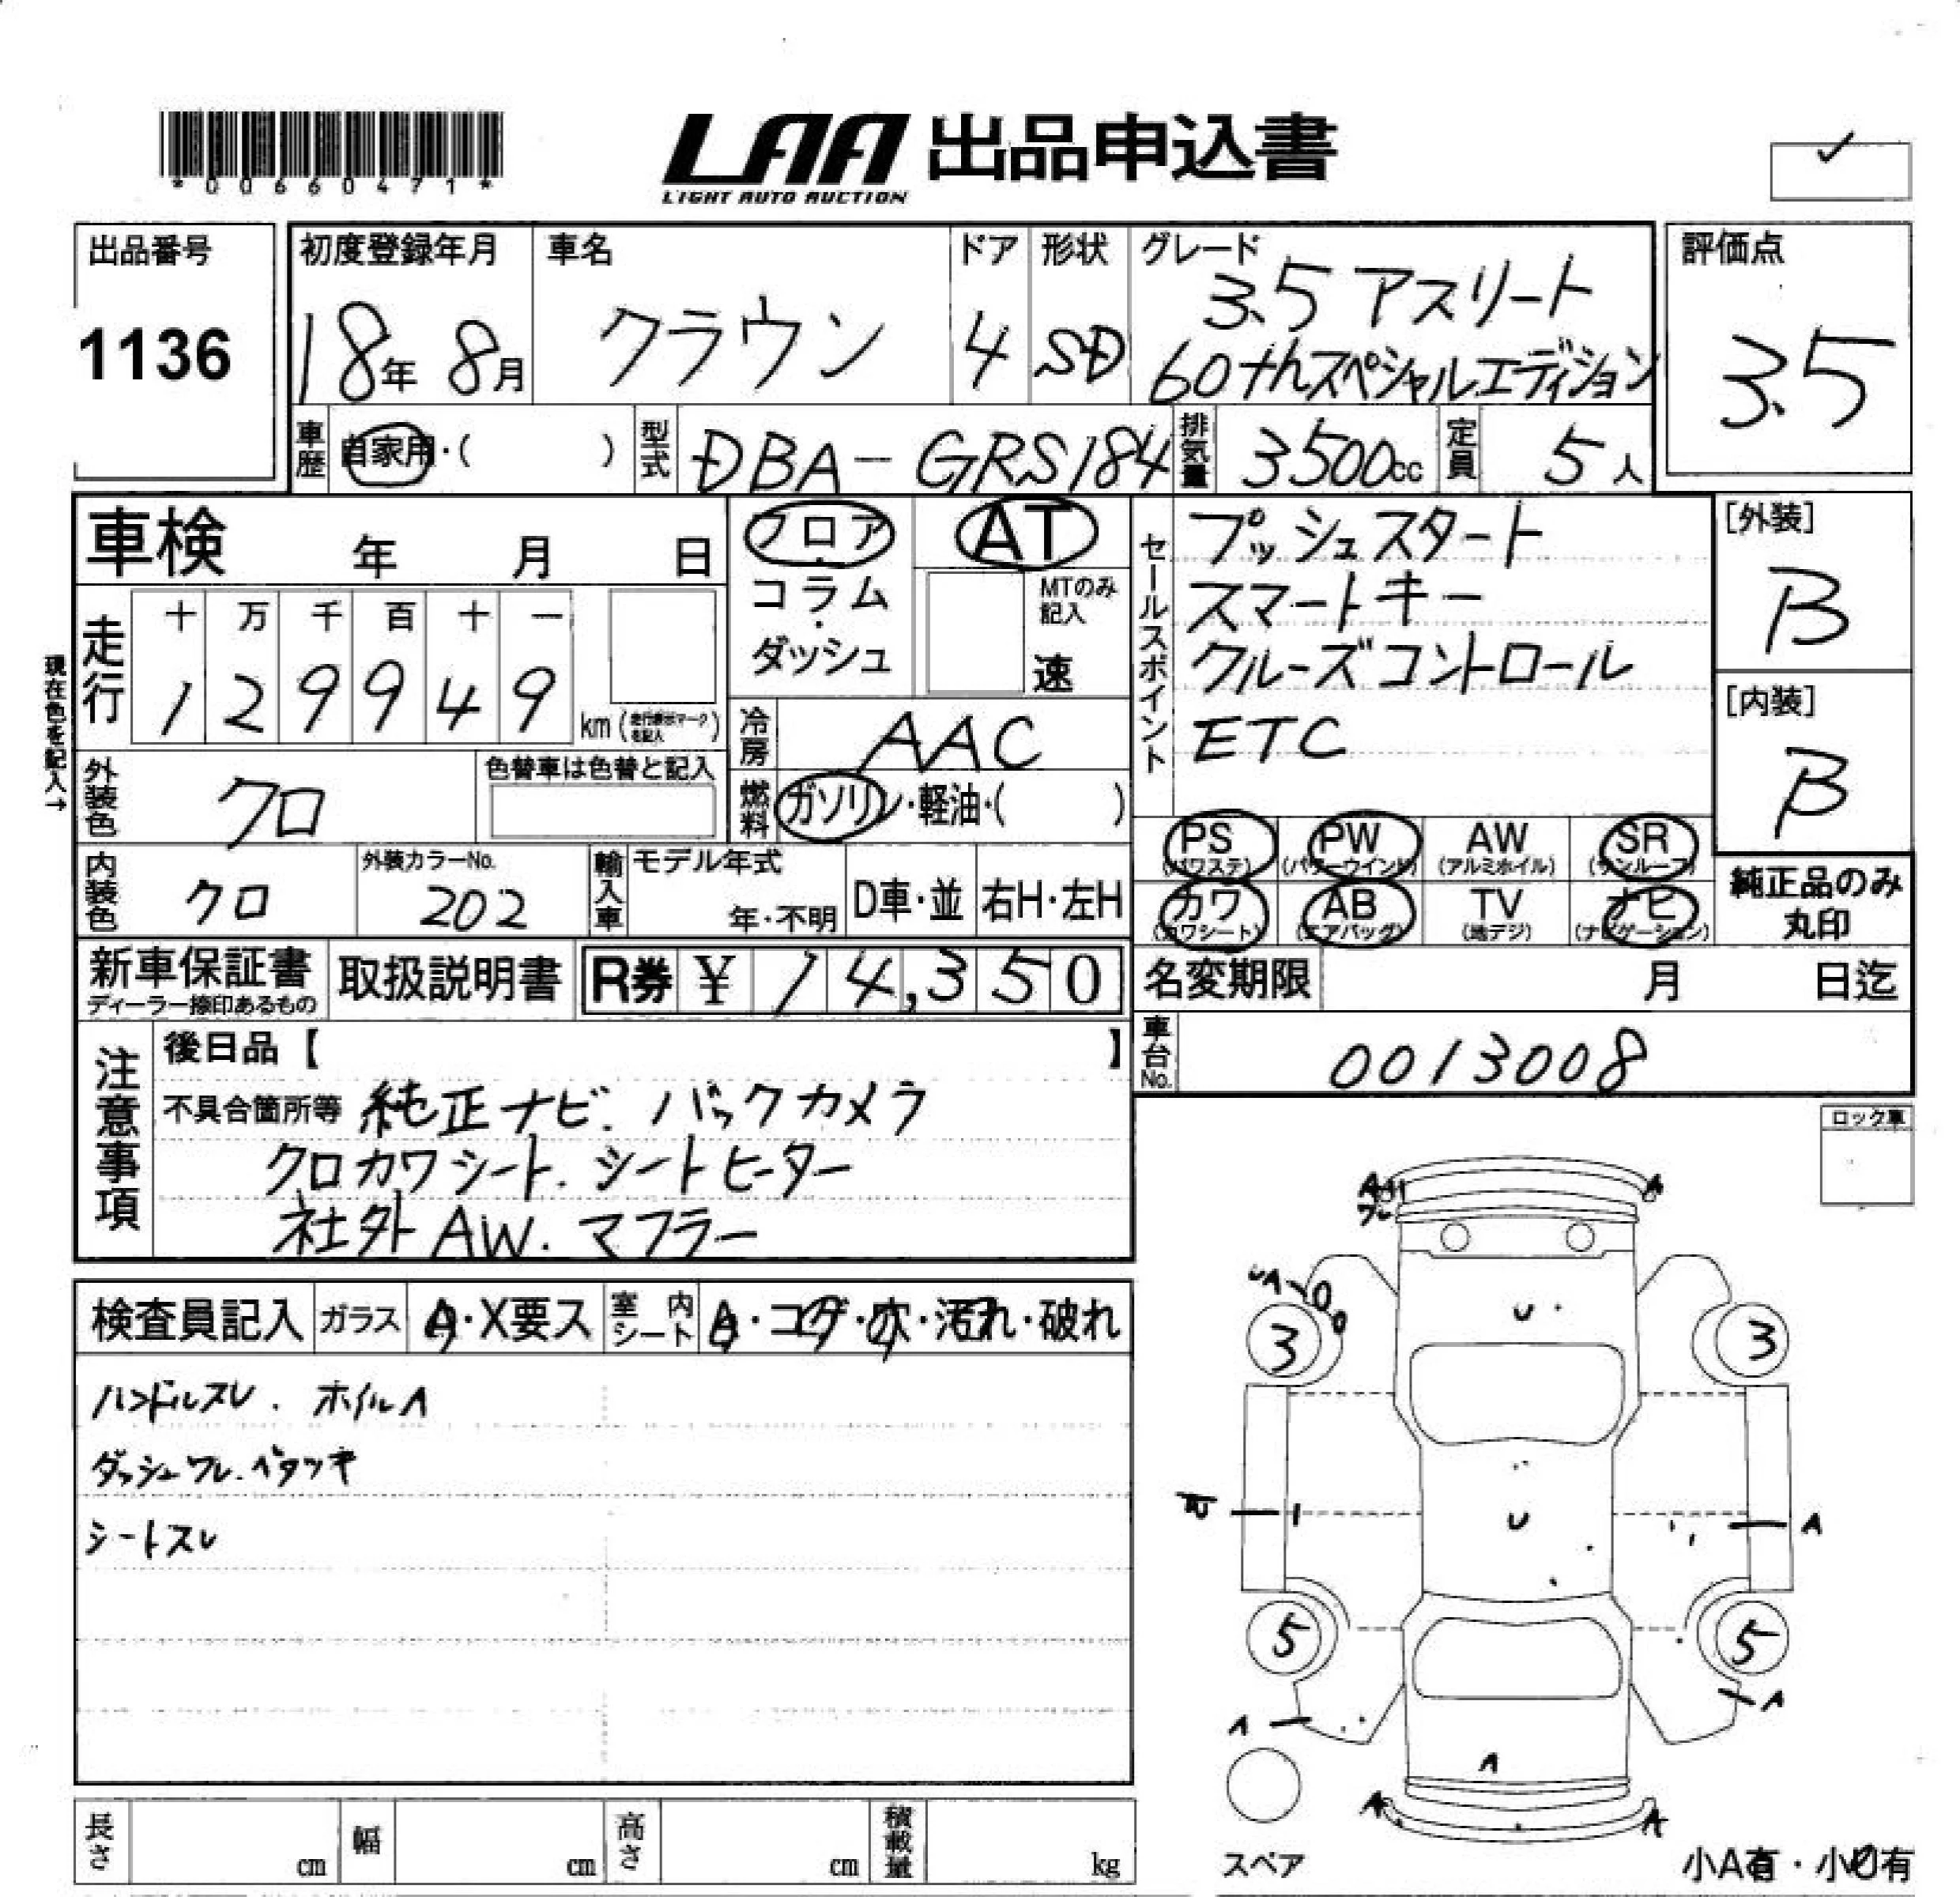 *00660471*
LAA 出品申込書
LIGHT AUTO AUCTION
✓
出品番号
1136
初度登録年月
18年 8月
車名
クラウン
ドア
4
形状
SD
グレード
3.5 アスリート
60thスペシャルエディション
評価点
3.5
車歴 自家用・( )
型式 DBA-GRS184
排気量 3500cc
定員 5人
車検 年 月 日
フロア・コラム・ダッシュ
AT
MTのみ記入
速
セールスポイント
プッシュスタート
スマートキー
クルーズコントロール
ETC
[外装]
B
[内装]
B
現在色を記入→
走行
十 万 千 百 十 一
1 2 9 9 4 9 km (走行表示マークを記入)
冷房 AAC
燃料 ガソリン・軽油・( )
外装色 クロ
色替車は色替と記入
PS (パワステ)
PW (パワーウインド)
AW (アルミホイル)
SR (サンルーフ)
カワ (カワシート)
AB (エアバッグ)
TV (地デジ)
ナビ (ナビゲーション)
純正品のみ丸印
内装色 クロ
外装カラーNo.
202
輸入車
モデル年式
年・不明
D車・並
右H・左H
新車保証書
ディーラー捺印あるもの
取扱説明書
R券 ¥ 14,350
名変期限 月 日迄
車台No. 0013008
注意事項
後日品【 】
不具合箇所等 純正ナビ. バックカメラ
クロカワシート. シートヒーター
社外AW. マフラー
ロック車
検査員記入
ガラス
A・X要ス
室内シート
A・コゲ・穴・汚れ・破れ
ハンドルスレ. ホイルA
ダッシュワレ. ベタツキ
シートスレ
A
ワレ
A
UA
U
3
3
U
A
5
5
A
A
A
A
A
スペア
小A有・小U有
長さ cm
幅 cm
高さ cm
積載量 kg